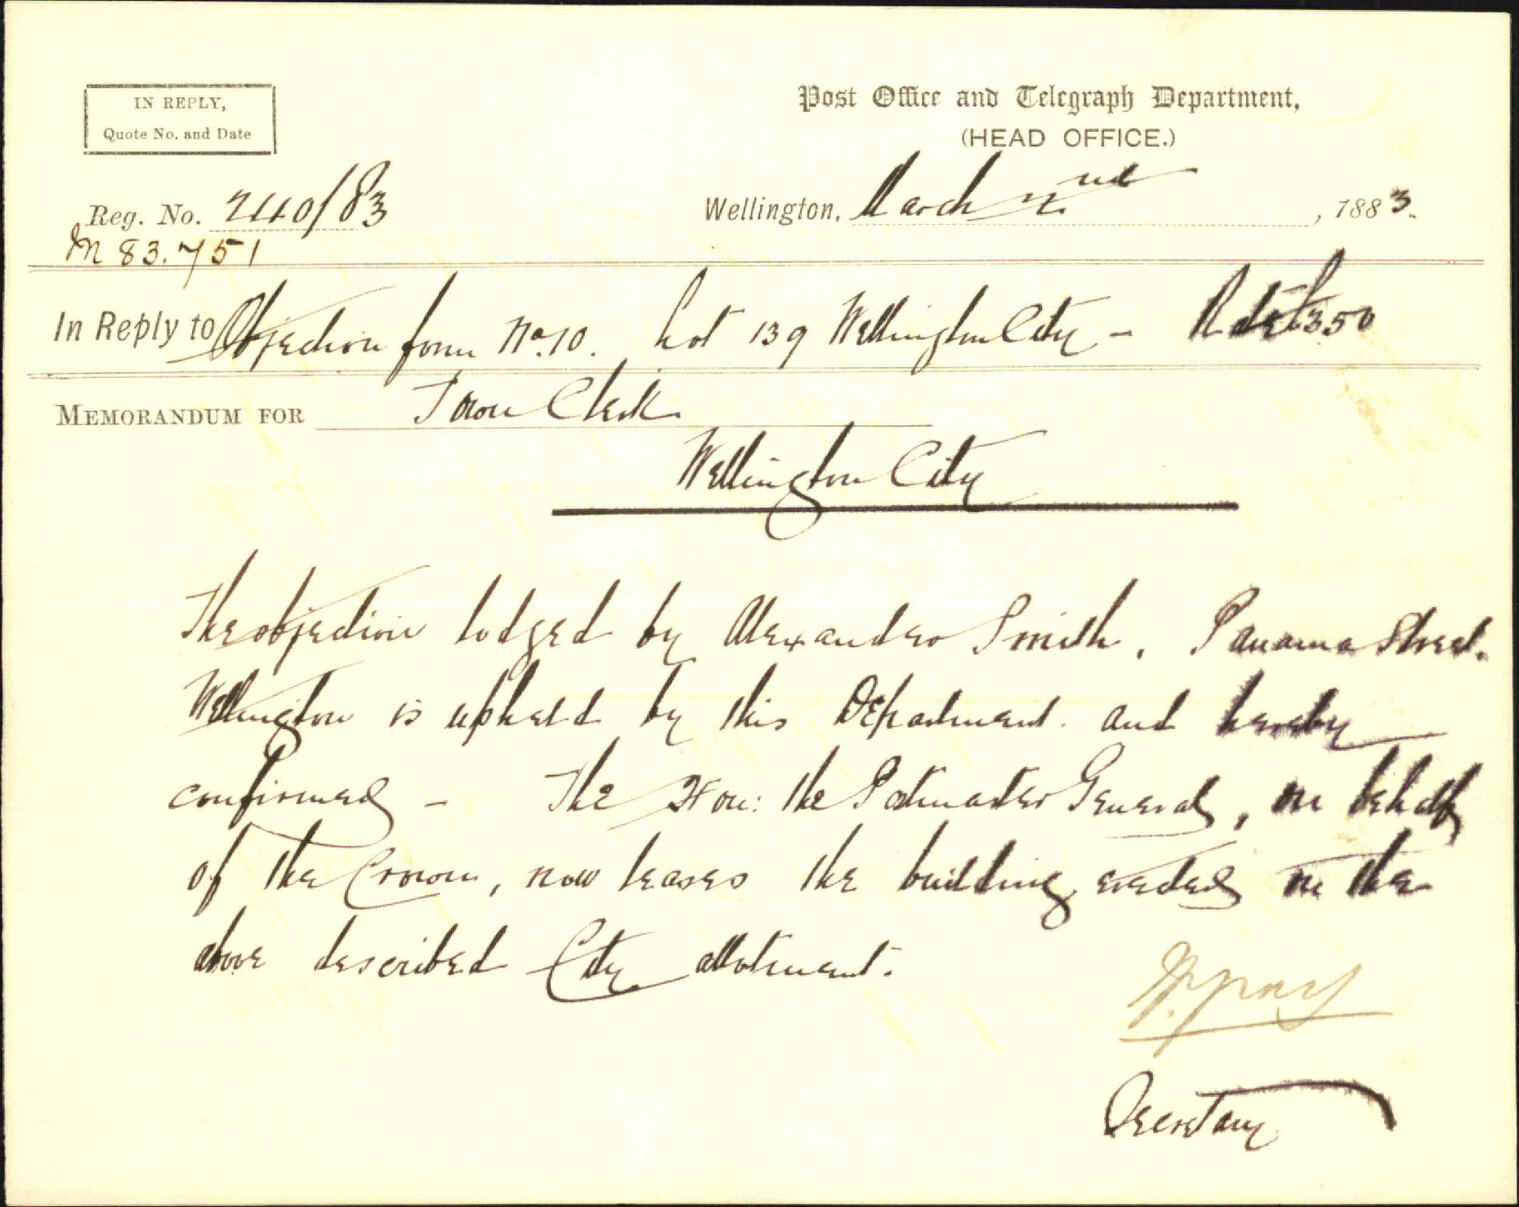 IN REPLY,
Quote No. and Date
Post Office and Telegraph Department,
(HEAD OFFICE.)
Reg. No. 240/83
Wellington, March 2nd, 1883.
M 83.751
In Reply to Objection form No. 10. Lot 139 Wellington City - £350
MEMORANDUM FOR Town Clerk
Wellington City
The objection lodged by Alexander Smith, Panama Street.
Wellington is upheld by this Department and hereby
confirmed - The Hon: the Postmaster General, on behalf
of the Crown, now leases the building erected on the
above described City allotment.
Gray
Secretary